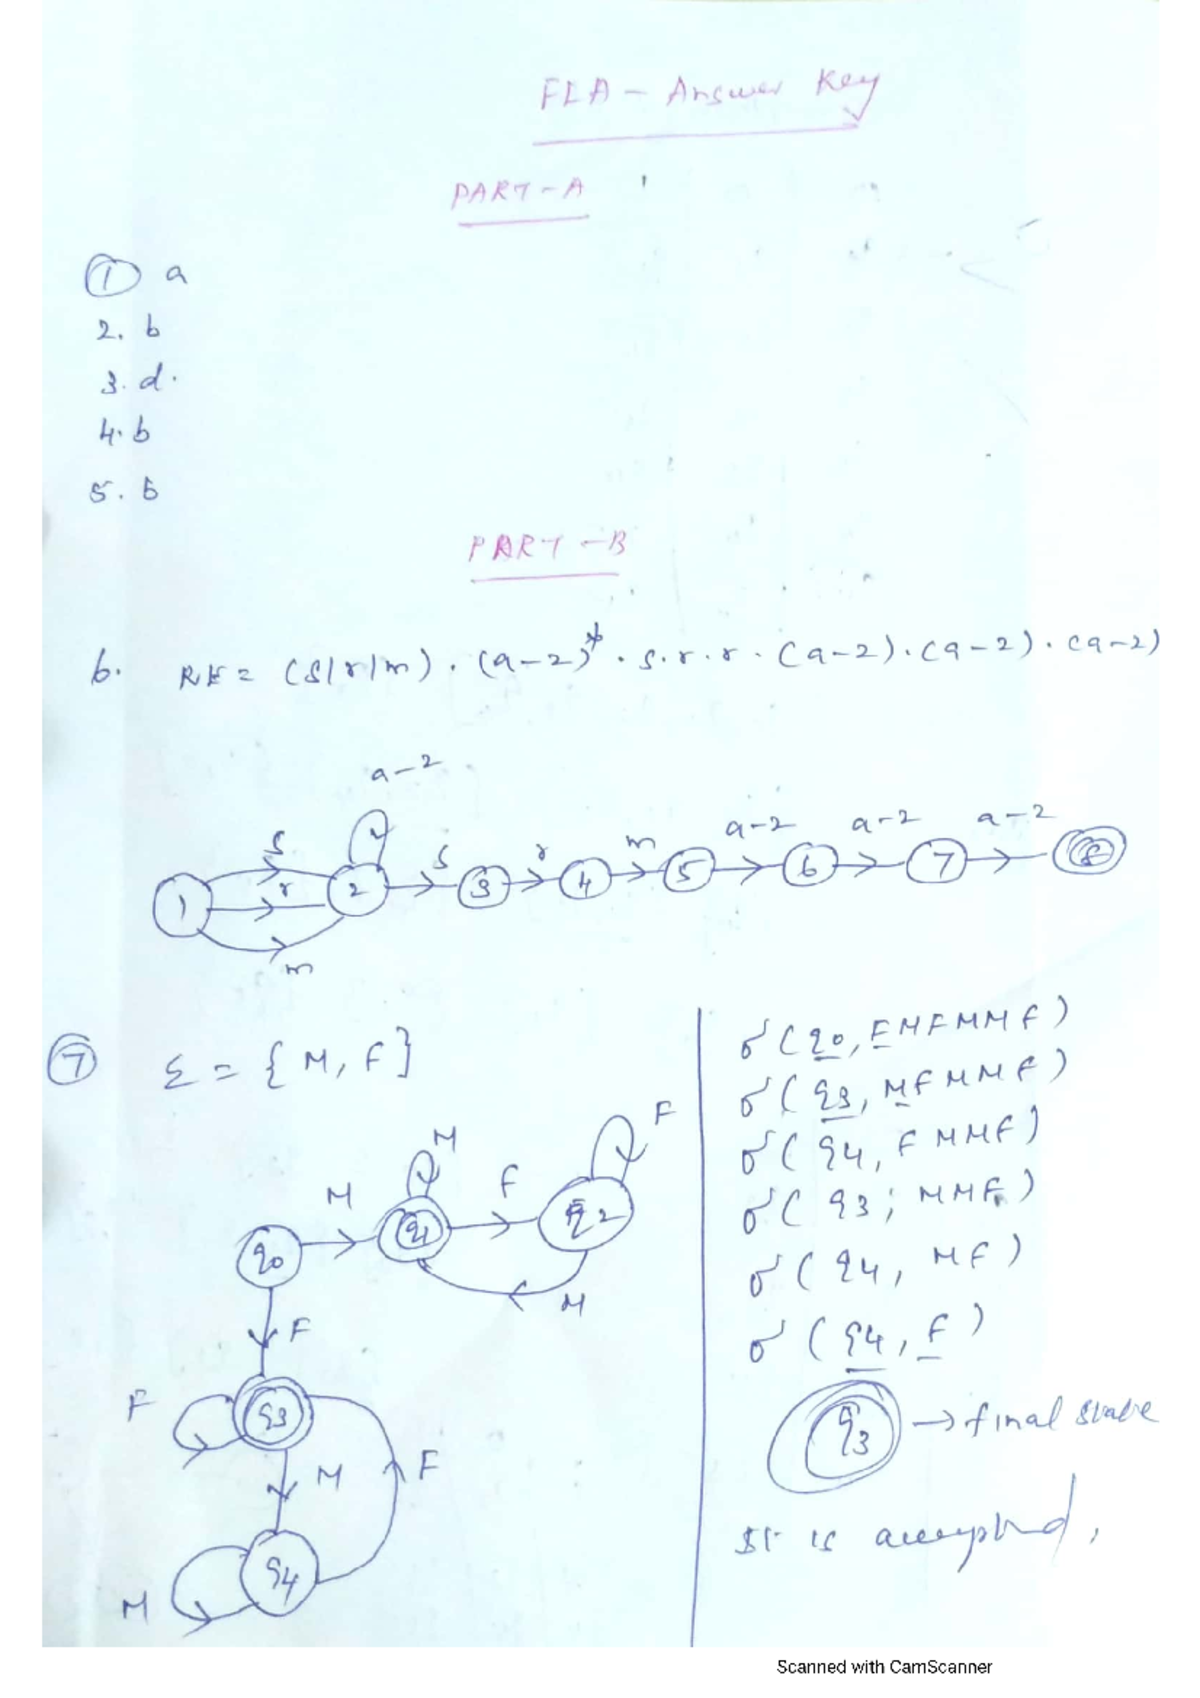 FLA - Answer Key
PART-A
1 a
2. b
3. d.
4. b
5. b
PART-B
6. RE = (s|r|m) . (a-z)* . s.r.r. (a-z).(a-z).(a-z)
a-z
s r m
1 2 s 3 r 4 m 5 a-z 6 a-z 7 a-z 8
7 Σ = {M, F}
M F
q0 M q1 F q2
M
F
F q3
M F
M q4
δ(q0, FMFMMF)
δ(q3, MFMMF)
δ(q4, FMMF)
δ(q3, MMF)
δ(q4, MF)
δ(q4, F)
q3 → final state
It is accepted.
Scanned with CamScanner